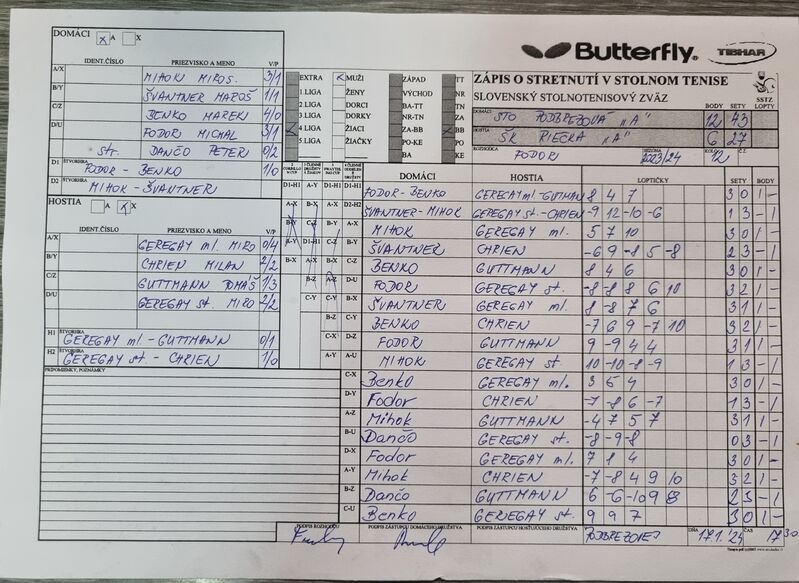 DOMÁCI x A X
IDENT.ČÍSLO PRIEZVISKO A MENO V/P
A/X MIHOK MIROS. 3/1
B/Y ŠVANTNER MAROŠ 1/1
C/Z BENKO MAREK 4/0
D/U FODOR MICHAL 3/1
st. DANČO PETER 0/2
D1 ŠTVORHRA FODOR - BENKO 1/0
D2 MIHOK - ŠVANTNER
HOSTIA A x X
IDENT.ČÍSLO PRIEZVISKO A MENO V/P
A/X GEREGAY ml. MIRO 0/4
B/Y CHRIEN MILAN 2/2
C/Z GUTTMANN TOMÁŠ 1/3
D/U GEREGAY st. MIRO 2/2
H1 ŠTVORHRA GEREGAY ml. - GUTTMANN 0/1
H2 ŠTVORHRA GEREGAY st. - CHRIEN 1/0
PRIPOMIENKY, POZNÁMKY
EXTRA x MUŽI ZÁPAD TT
1.LIGA ŽENY VÝCHOD NR
2.LIGA DORCI BA-TT TN
3.LIGA DORKY NR-TN ZA
4.LIGA ŽIACI ZA-BB BB
5.LIGA ŽIAČKY PO-KE PO
BA KE
Butterfly. TIBHAR
ZÁPIS O STRETNUTÍ V STOLNOM TENISE
SLOVENSKÝ STOLNOTENISOVÝ ZVÄZ
BODY SETY LOPTY
SSTZ
DOMÁCI STO PODBREZOVÁ "A" 12 43
HOSTIA ŠK RIEČKA "A" 6 27
ROZHODCA FODOR SEZÓNA 2023/24 KOLO 12 Č.Z.
DOMÁCI HOSTIA LOPTIČKY SETY BODY
D1-H1 A-Y D1-H1 D1-H1 FODOR - BENKO GEREGAY ml. - GUTTMAN 8 4 7 3 0 1 -
ŠVANTNER - MIHOK GEREGAY st. - CHRIEN -9 12 -10 -6 1 3 - 1
MIHOK GEREGAY ml. 5 7 10 3 0 1 -
ŠVANTNER CHRIEN -6 9 -8 5 -8 2 3 - 1
BENKO GUTTMANN 8 4 6 3 0 1 -
FODOR GEREGAY st. -8 -8 8 6 10 3 2 1 -
ŠVANTNER GEREGAY ml. 8 -8 7 6 3 1 1 -
BENKO CHRIEN -7 6 9 -7 10 3 2 1 -
FODOR GUTTMANN 9 -9 4 4 3 1 1 -
MIHOK GEREGAY st. 10 -10 -8 -9 1 3 - 1
C-X Benko GEREGAY ml. 3 6 4 3 0 1 -
D-Y Fodor CHRIEN -7 -8 6 -7 1 3 - 1
A-Z Mihok GUTTMANN -4 7 5 7 3 1 1 -
B-U Dančo GEREGAY st. -8 -9 -8 0 3 - 1
D-X Fodor GEREGAY ml. 7 1 4 3 0 1 -
A-Y Mihok CHRIEN -7 -8 4 9 10 3 2 1 -
B-Z Dančo GUTTMANN 6 -6 -10 9 -8 2 3 - 1
C-U Benko GEREGAY st. 9 9 7 3 0 1 -
PODPIS ROZHODCU PODPIS ZÁSTUPCU DOMÁCEHO DRUŽSTVA PODPIS ZÁSTUPCU HOSŤUJÚCEHO DRUŽSTVA PODBREZOVEJ DŇA 17.1.'24 ČAS 17 30